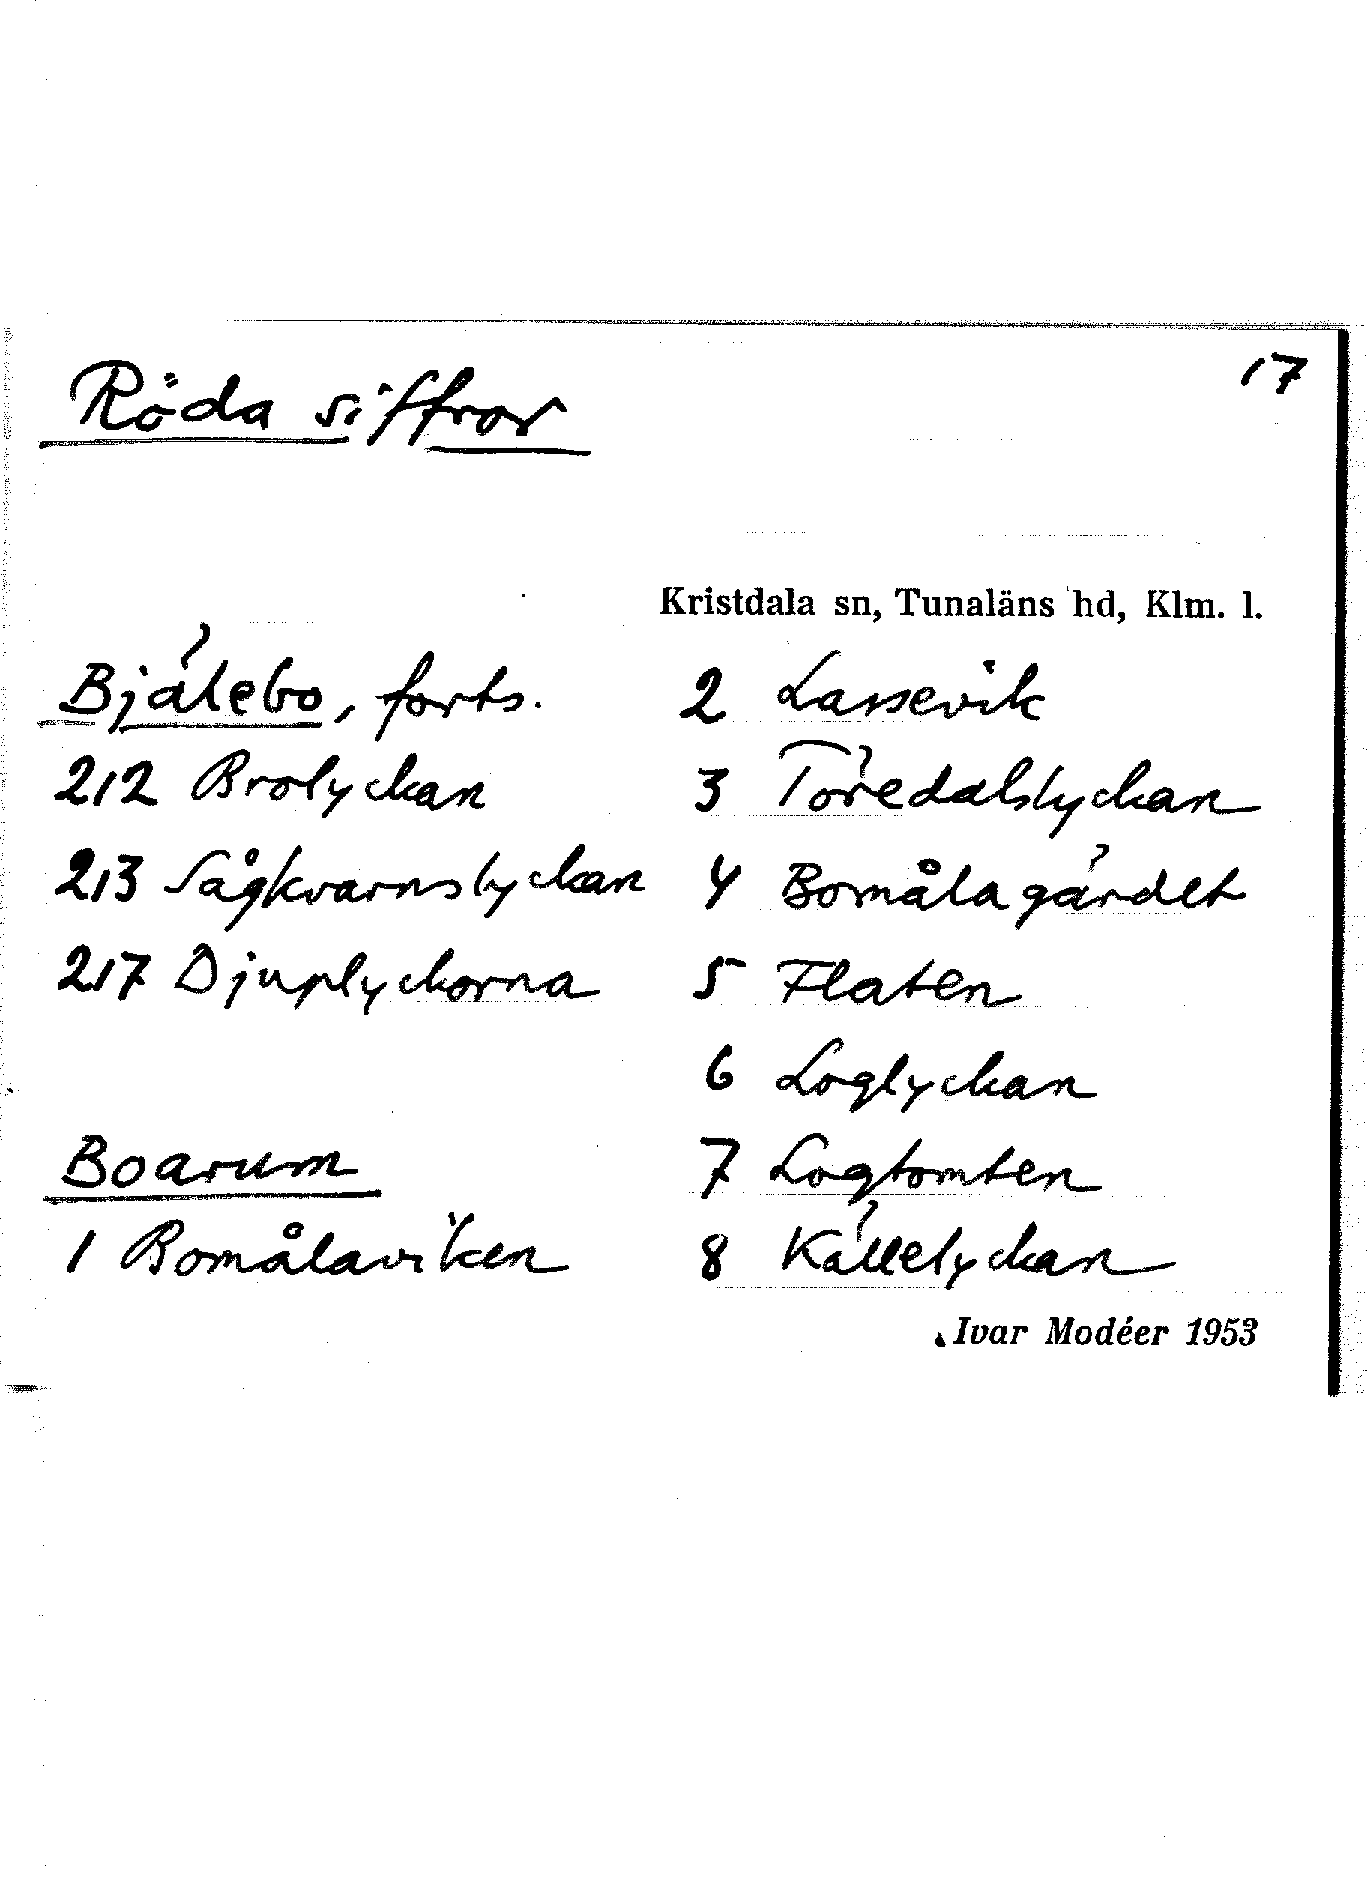 17
Röda siffror
Kristdala sn, Tunaläns hd, Klm. l.
Bjälebo, forts.
212 Brolyckan
213 Sågkvarnslyckan
217 Djuplyckorna
Boarum
1 Bomålaviken
2 Lassevik
3 Töredalslyckan
4 Bomålagärdet
5 Flaten
6 Loglyckan
7 Logtomten
8 Källelyckan
Ivar Modéer 1953